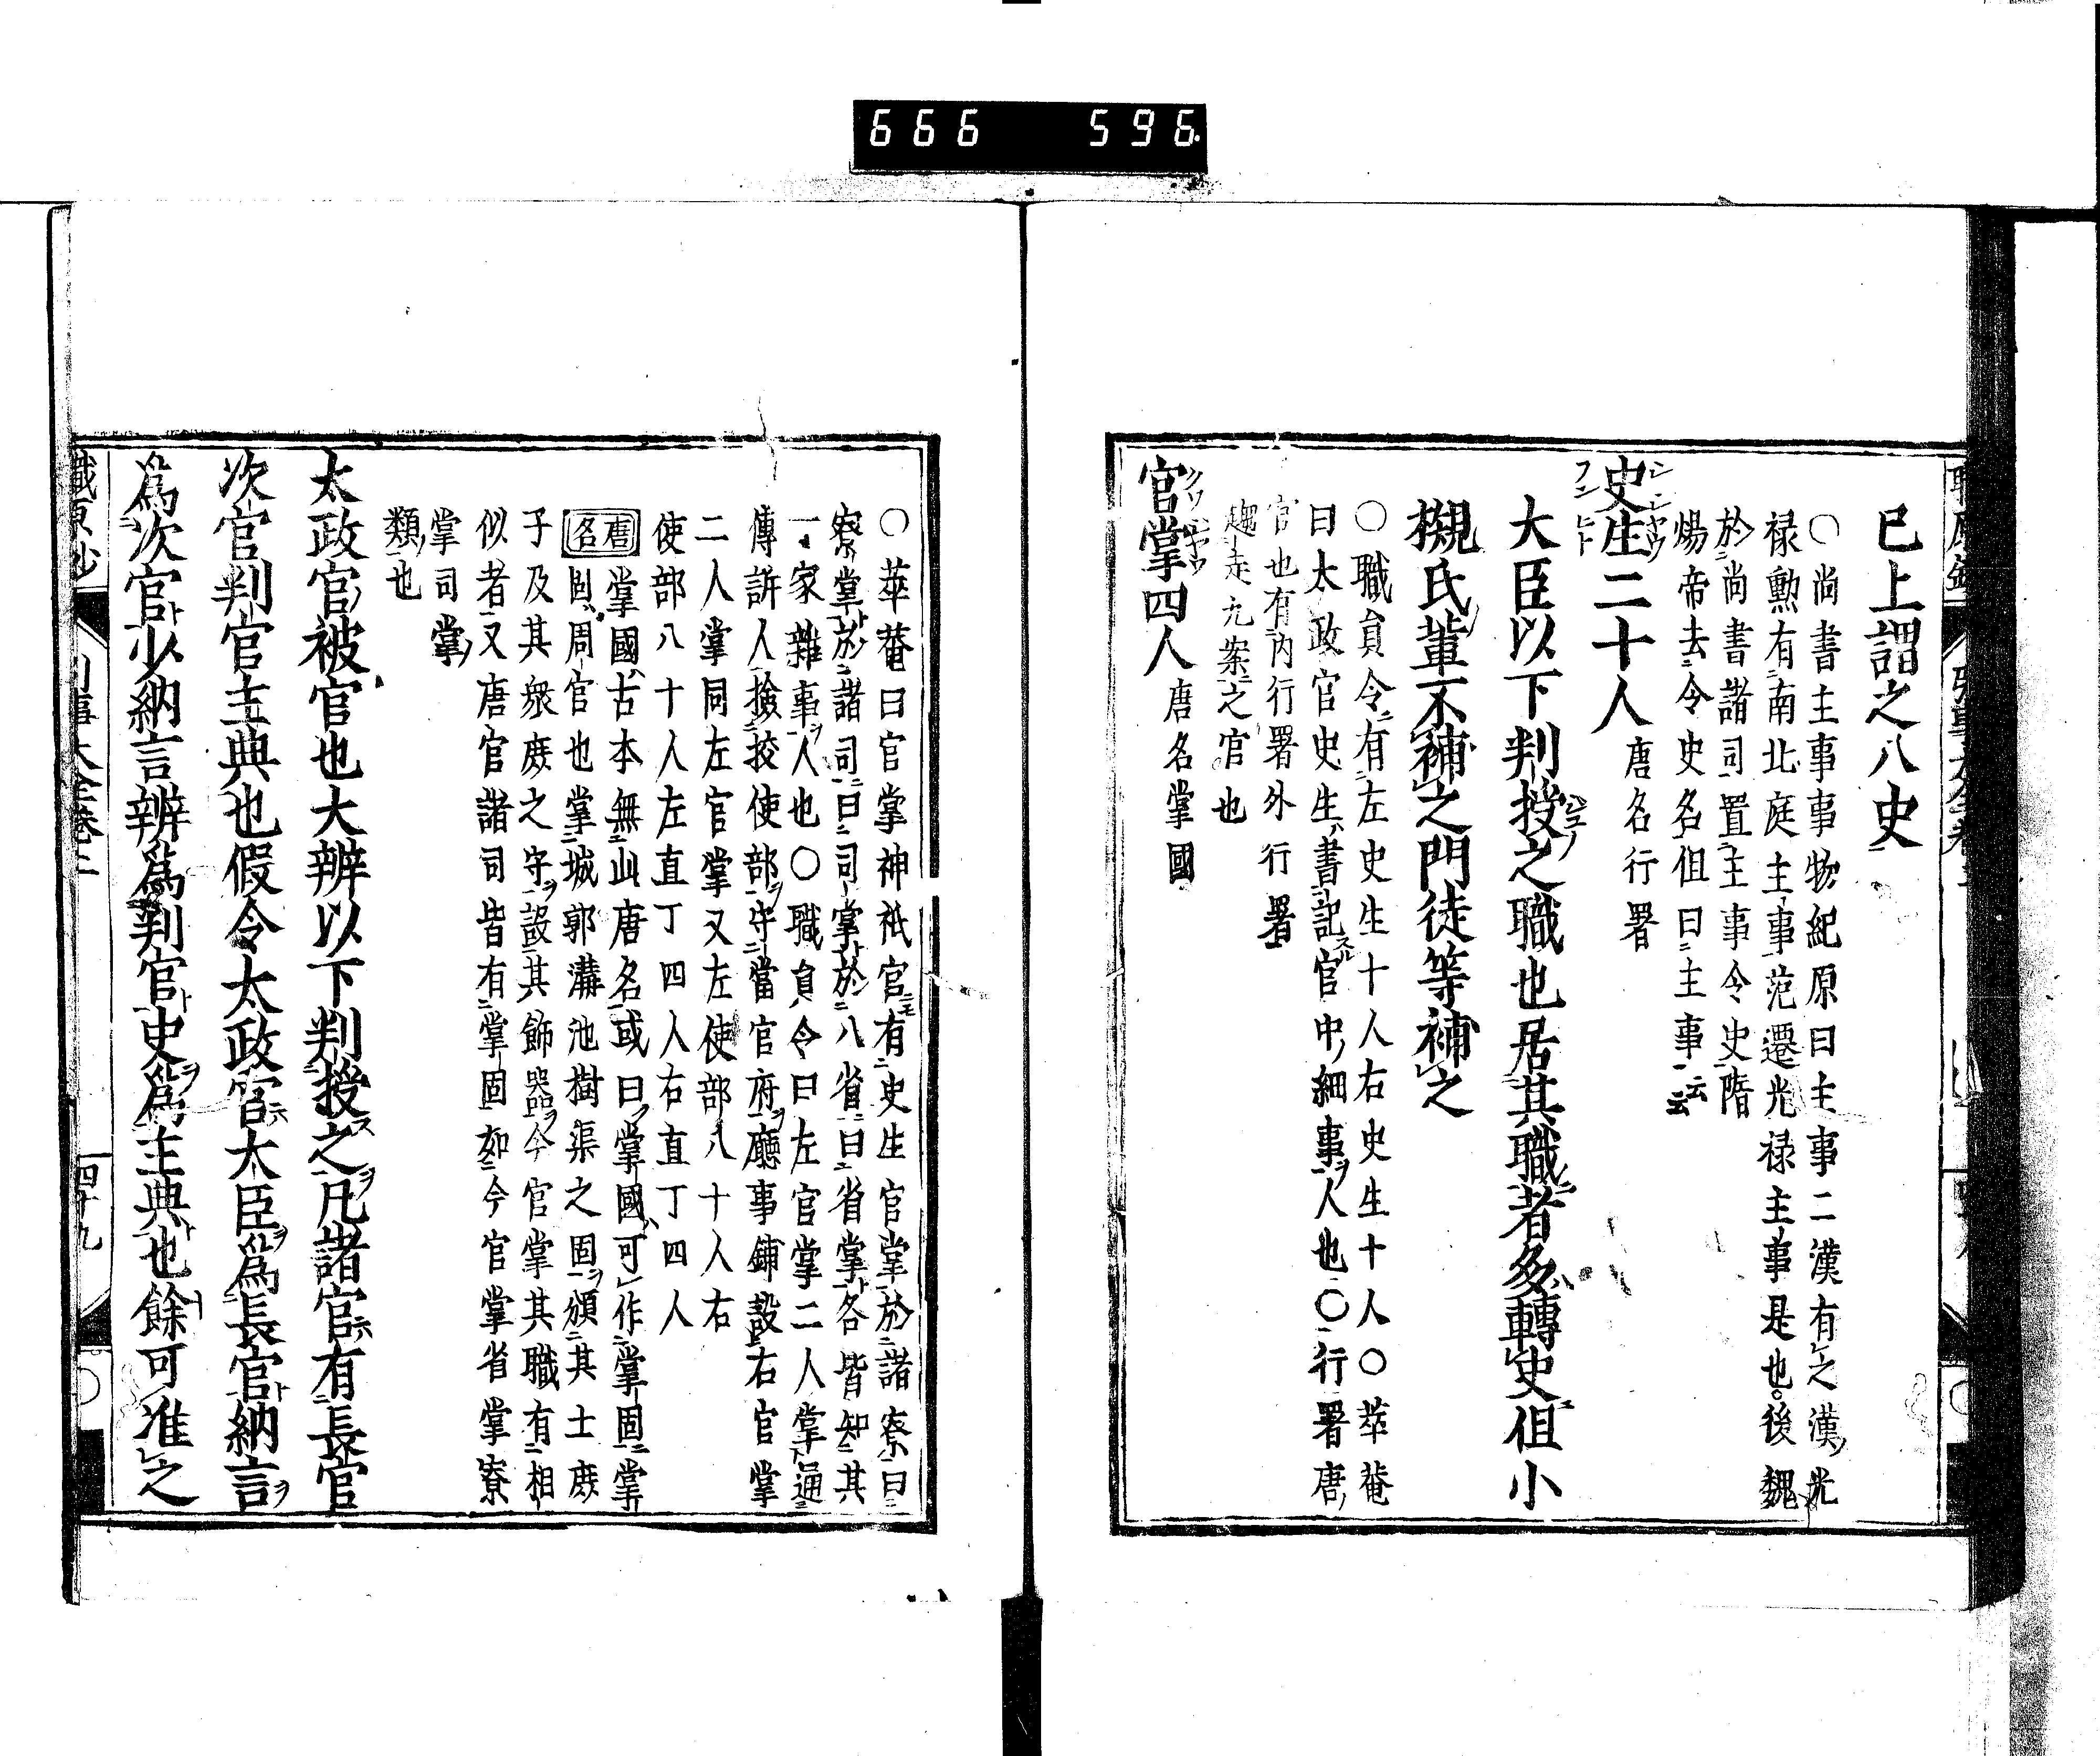 666 596
已上謂之八史
○尚書主事事物紀原曰主事二漢有之漢光
禄勲有南北庭主事范遷光禄主事是也後魏
於尚書諸司置主事令史隋
煬帝去令史名但曰主事云云
史生二十人 唐名行署
大臣以下判授之職也居其職者多轉史但小
槻氏輩不補之門徒等補之
○職員令有左史生十人右史生十人○萃菴
曰太政官史生書記官中細事人也○行署唐
官也有内行署外行署
趨走九案之官也
官掌四人 唐名掌國
○萃菴曰官掌神祇官有史生官掌於諸寮曰
寮掌於諸司曰司掌於八省曰省掌各皆知其
一家雜事人也○職員令曰左官掌二人掌通
傳訴人撿挍使部守當官府廳事鋪設右官掌
二人掌同左官掌又左使部八十人右
使部八十人左直丁四人右直丁四人
唐名 掌國古本無此唐名或曰掌國可作掌固掌
固周官也掌城郭溝池樹渠之固頒其士庶
子及其衆庶之守設其飾器今官掌其職有相
似者又唐官諸司皆有掌固如今官掌省掌寮
掌司掌
類也
太政官被官也大辨以下判授之凡諸官有長官
次官判官主典也假令太政官大臣爲長官納言
爲次官少納言辨爲判官史爲主典也餘可准之
四十九